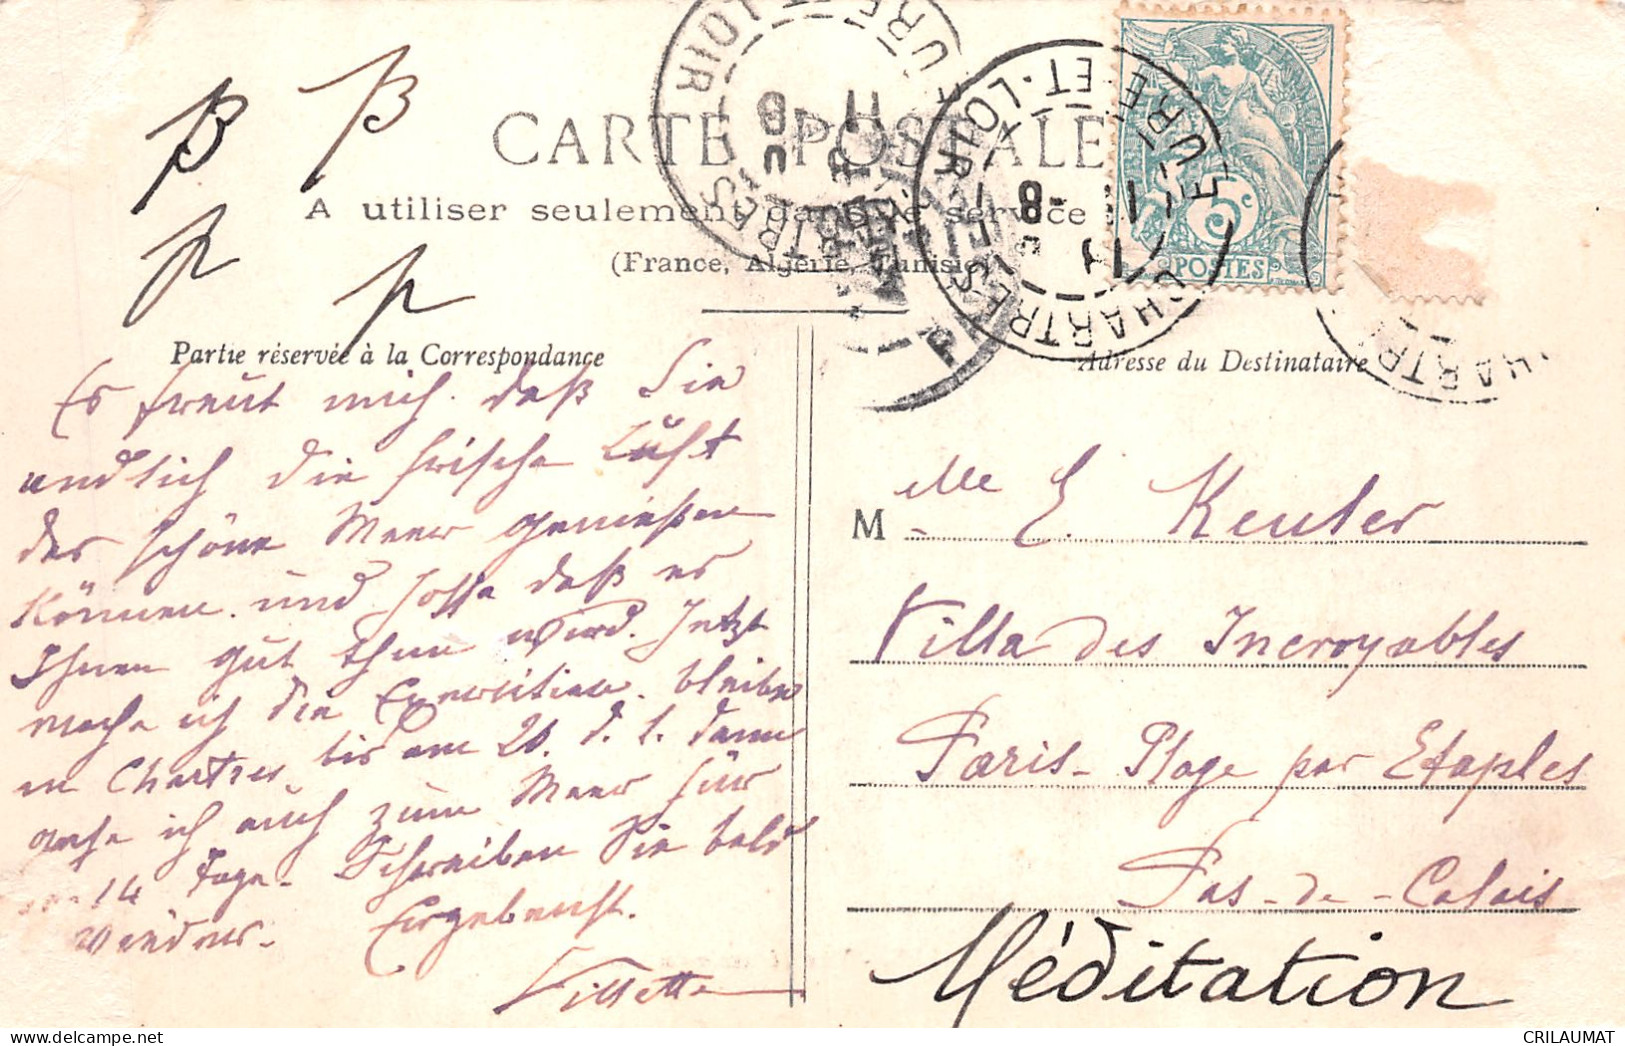 B B
p p
CARTE POSTALE
A utiliser seulement dans le service
(France, Algérie, Tunisie)
EURE-ET-LOIR
CHARTRES
EURE-ET-LOIR
CHARTRES
5c
POSTES
Partie réservée à la Correspondance
Es freut mich daß Sie
endlich die frische Luft
der schöne Meer genießen
können und hoffe daß es
Ihnen gut thun wird. Jetzt
mache ich die Exercitien. bleibe
in Chartres bis am 20. d. l. dann
gehe ich auch zum Meer für
14 Tage. Schreiben Sie bald
wieder. Ergebenst.
Villette
Adresse du Destinataire
Melle E. Keuler
Villa des Incroyables
Paris-Plage par Etaples
Pas-de-Calais
Méditation
CRILAUMAT